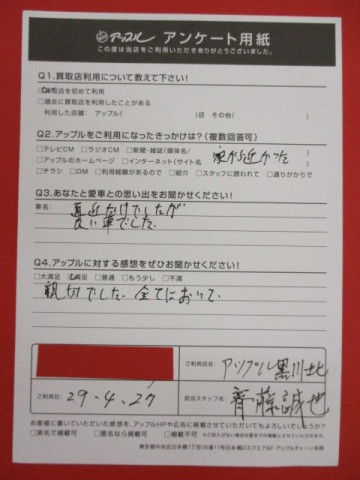 アップル アンケート用紙
この度は当店をご利用いただきありがとうございました。
Q1.買取店利用について教えて下さい!
買取店を初めて利用
□過去に買取店を利用したことがある
利用した店舗: アップル( )店 その他( )
Q2.アップルをご利用になったきっかけは?(複数回答可)
□テレビCM □ラジオCM □新聞・雑誌(媒体名/ )
□アップルのホームページ □インターネット(サイト名 家から近かった )
□チラシ □DM □利用経験があるので □紹介 □スタッフに誘われて □通りがかりで
Q3.あなたと愛車との思い出をお聞かせください!
車名:
直近だけでしたが
良い車でした。
Q4.アップルに対する感想をぜひお聞かせください!
□大満足 満足 □普通 □もう少し □不満
親切でした。全てにおいて。
ご利用店名: アップル黒川北
ご利用日: 29.4.27
担当スタッフ名: 齊藤誠也
お客様に書いていただいた感想を、アップルHPや広告に掲載させていただいてもよろしいでしょうか?
□実名で掲載可 □匿名なら掲載可 □掲載不可
東京都中央区日本橋1丁目16番11号日本橋ロスクエア9F アップルチェーン本部